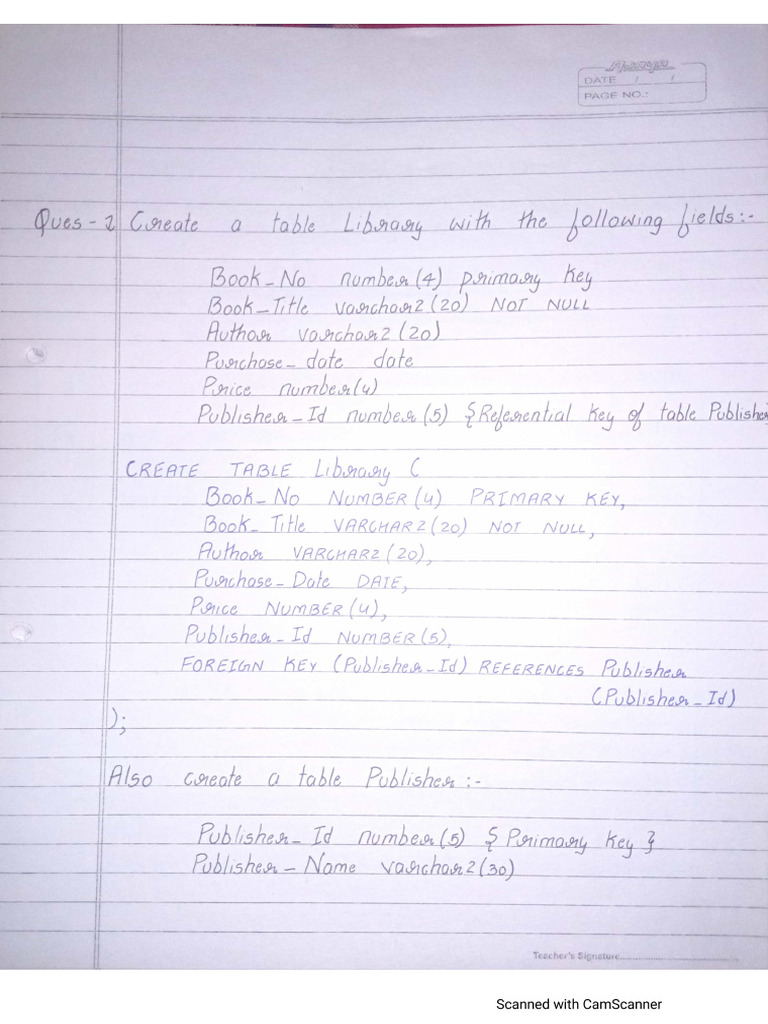 DATE / /
PAGE NO.:
Ques-2 Create a table Library with the following fields:-
Book_No number(4) primary key
Book_Title varchar2(20) NOT NULL
Author varchar2(20)
Purchase_date date
Price number(4)
Publisher_Id number(5) {Referential key of table Publisher}
CREATE TABLE Library (
Book_No NUMBER(4) PRIMARY KEY,
Book_Title VARCHAR2(20) NOT NULL,
Author VARCHAR2(20),
Purchase_Date DATE,
Price NUMBER(4),
Publisher_Id NUMBER(5),
FOREIGN KEY (Publisher_Id) REFERENCES Publisher
(Publisher_Id)
);
Also create a table Publisher:-
Publisher_Id number(5) {Primary Key}
Publisher_Name varchar2(30)
Teacher's Signature
Scanned with CamScanner